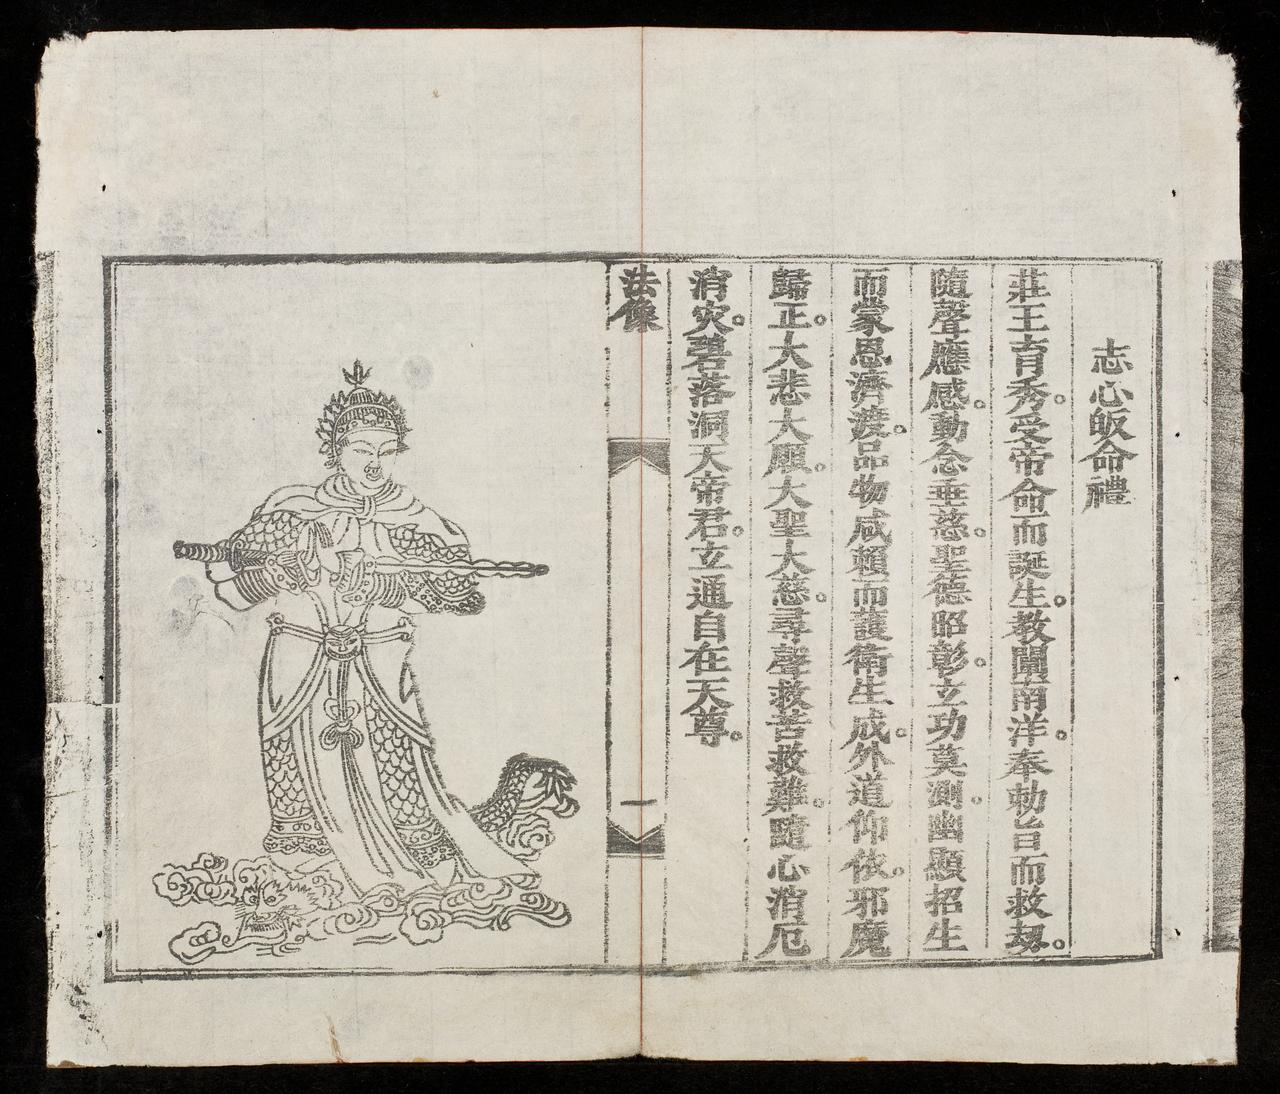 志心皈命禮
莊王育秀。受帝命而誕生。教闡南洋。奉勅旨而救劫。
隨聲應感。動念垂慈。聖德昭彰。立功莫測。幽顯招生
而蒙恩濟渡。品物咸賴而護衛生成。外道仰依。邪魔
歸正。大悲大願。大聖大慈。尋聲救苦救難。隨心消厄
消灾。碧落洞天帝君。玄通自在天尊。
法像
一